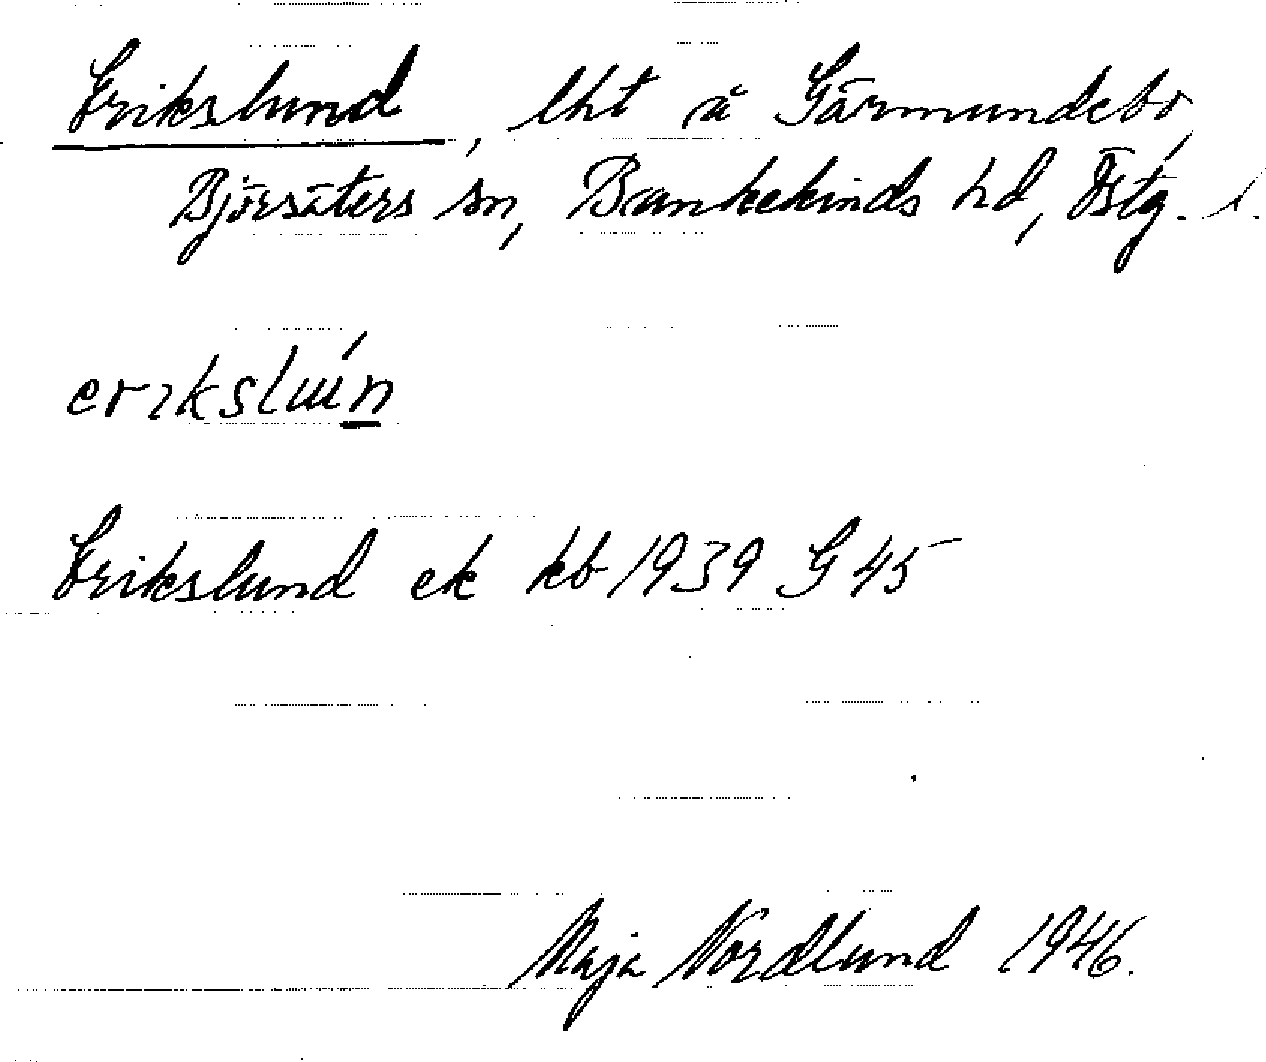 Erikslund, lht å Gärmundebo,
Björsäters sn, Bankekinds hd, Östg. l.
eriksluń
Erikslund ek kb 1939 G 45
Maja Nordlund 1946.